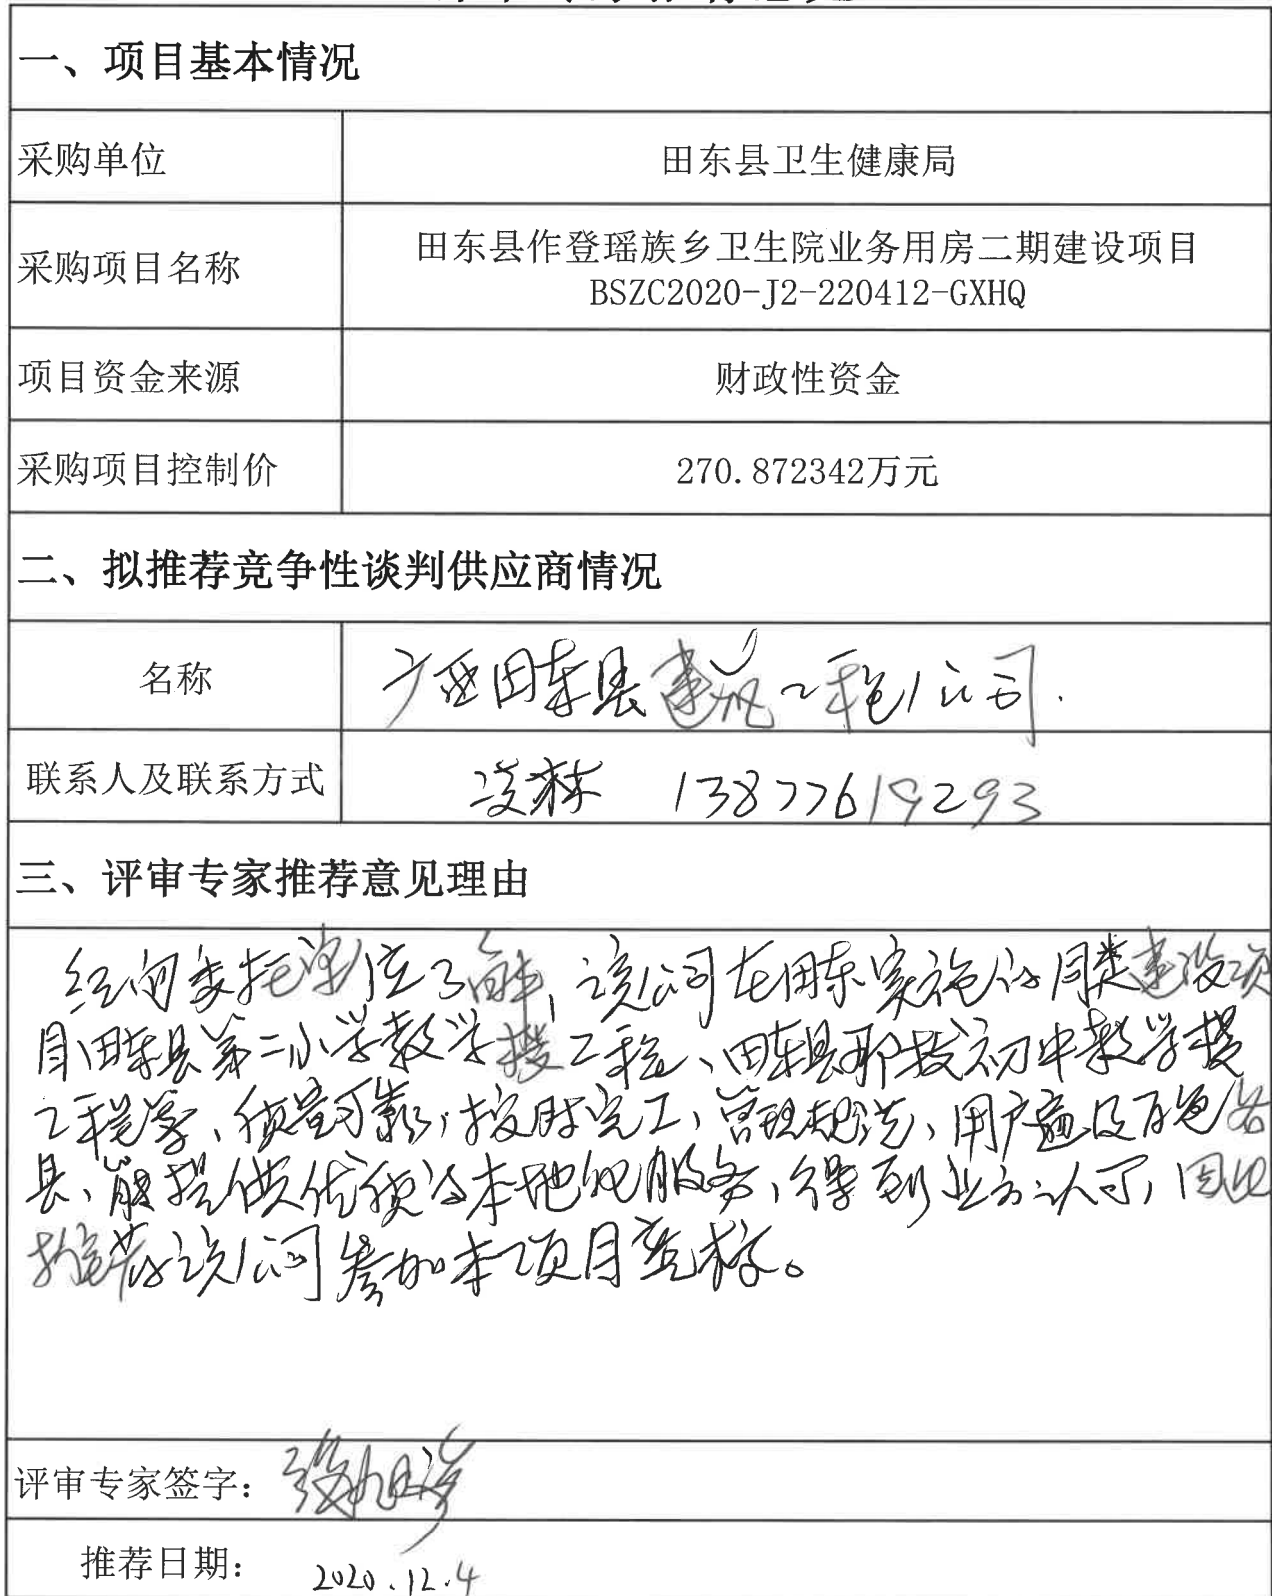 一、项目基本情况
采购单位 田东县卫生健康局
采购项目名称 田东县作登瑶族乡卫生院业务用房二期建设项目
BSZC2020-J2-220412-GXHQ
项目资金来源 财政性资金
采购项目控制价 270.872342万元
二、拟推荐竞争性谈判供应商情况
名称 广西田东县建筑工程公司.
联系人及联系方式 凌森 13877619293
三、评审专家推荐意见理由
经向委托单位了解,该公司在田东实施的同类建设项
目田东县第二小学教学楼工程、田东县那拔初中教学楼
工程等、质量可靠,按时完工、管理规范、用户遍及百色各
县、能提供优质的本地化服务,得到业主认可,因此
推荐该公司参加本项目竞标。
评审专家签字:
推荐日期: 2020.12.4